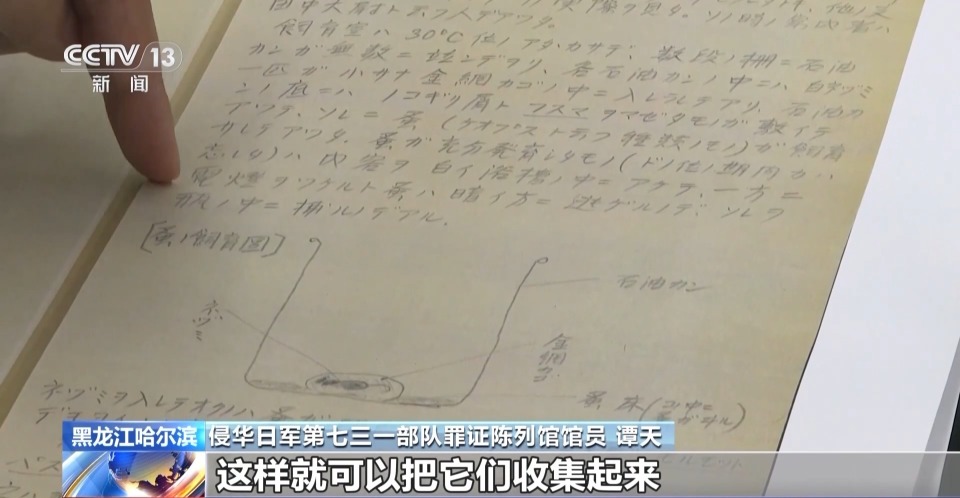 CCTV 13
新闻
飼育室ハ30℃位ノアタカサデ、数段ノ棚ニ石油
カンガ無数ニ並ンデヲリ、各石油カンノ中ニハ白ネヅミ
一匹ガ小サナ金網カゴノ中ニ入レラレテアリ、石油カ
ンノ底ニハノコギリ屑トフスマヲマゼタモノガ敷イテ
アッテ、ソレニ蚤(ケオプストラフ種類ノモノ)ガ飼育
サレテアッタ、蚤ガ充分発育シタモノ(ドノ位ノ期間カハ
忘レタ)ハ内容ヲ白イ浴槽ノ中ニアケテ、一方ニ
電燈ヲツケルト蚤ハ暗イ方ニ逃ゲルノデ、ソレヲ
瓶ノ中ニ捕ルノデアル。
[蚤ノ飼育図]
石油カン
ネヅミ
金網カゴ
蚤床
ネヅミヲ入レテオクノハ蚤ガ
黑龙江哈尔滨
侵华日军第七三一部队罪证陈列馆馆员 谭天
这样就可以把它们收集起来